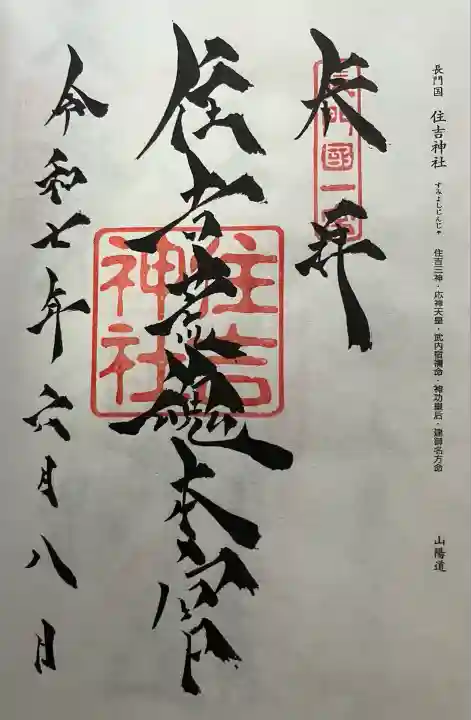 長門国 住吉神社 すみよしじんじゃ 住吉三神・応神天皇・武内宿禰命・神功皇后・建御名方命 山陽道
奉拝
長門國一宮
住吉荒魂本宮
住吉神社
令和七年六月八日